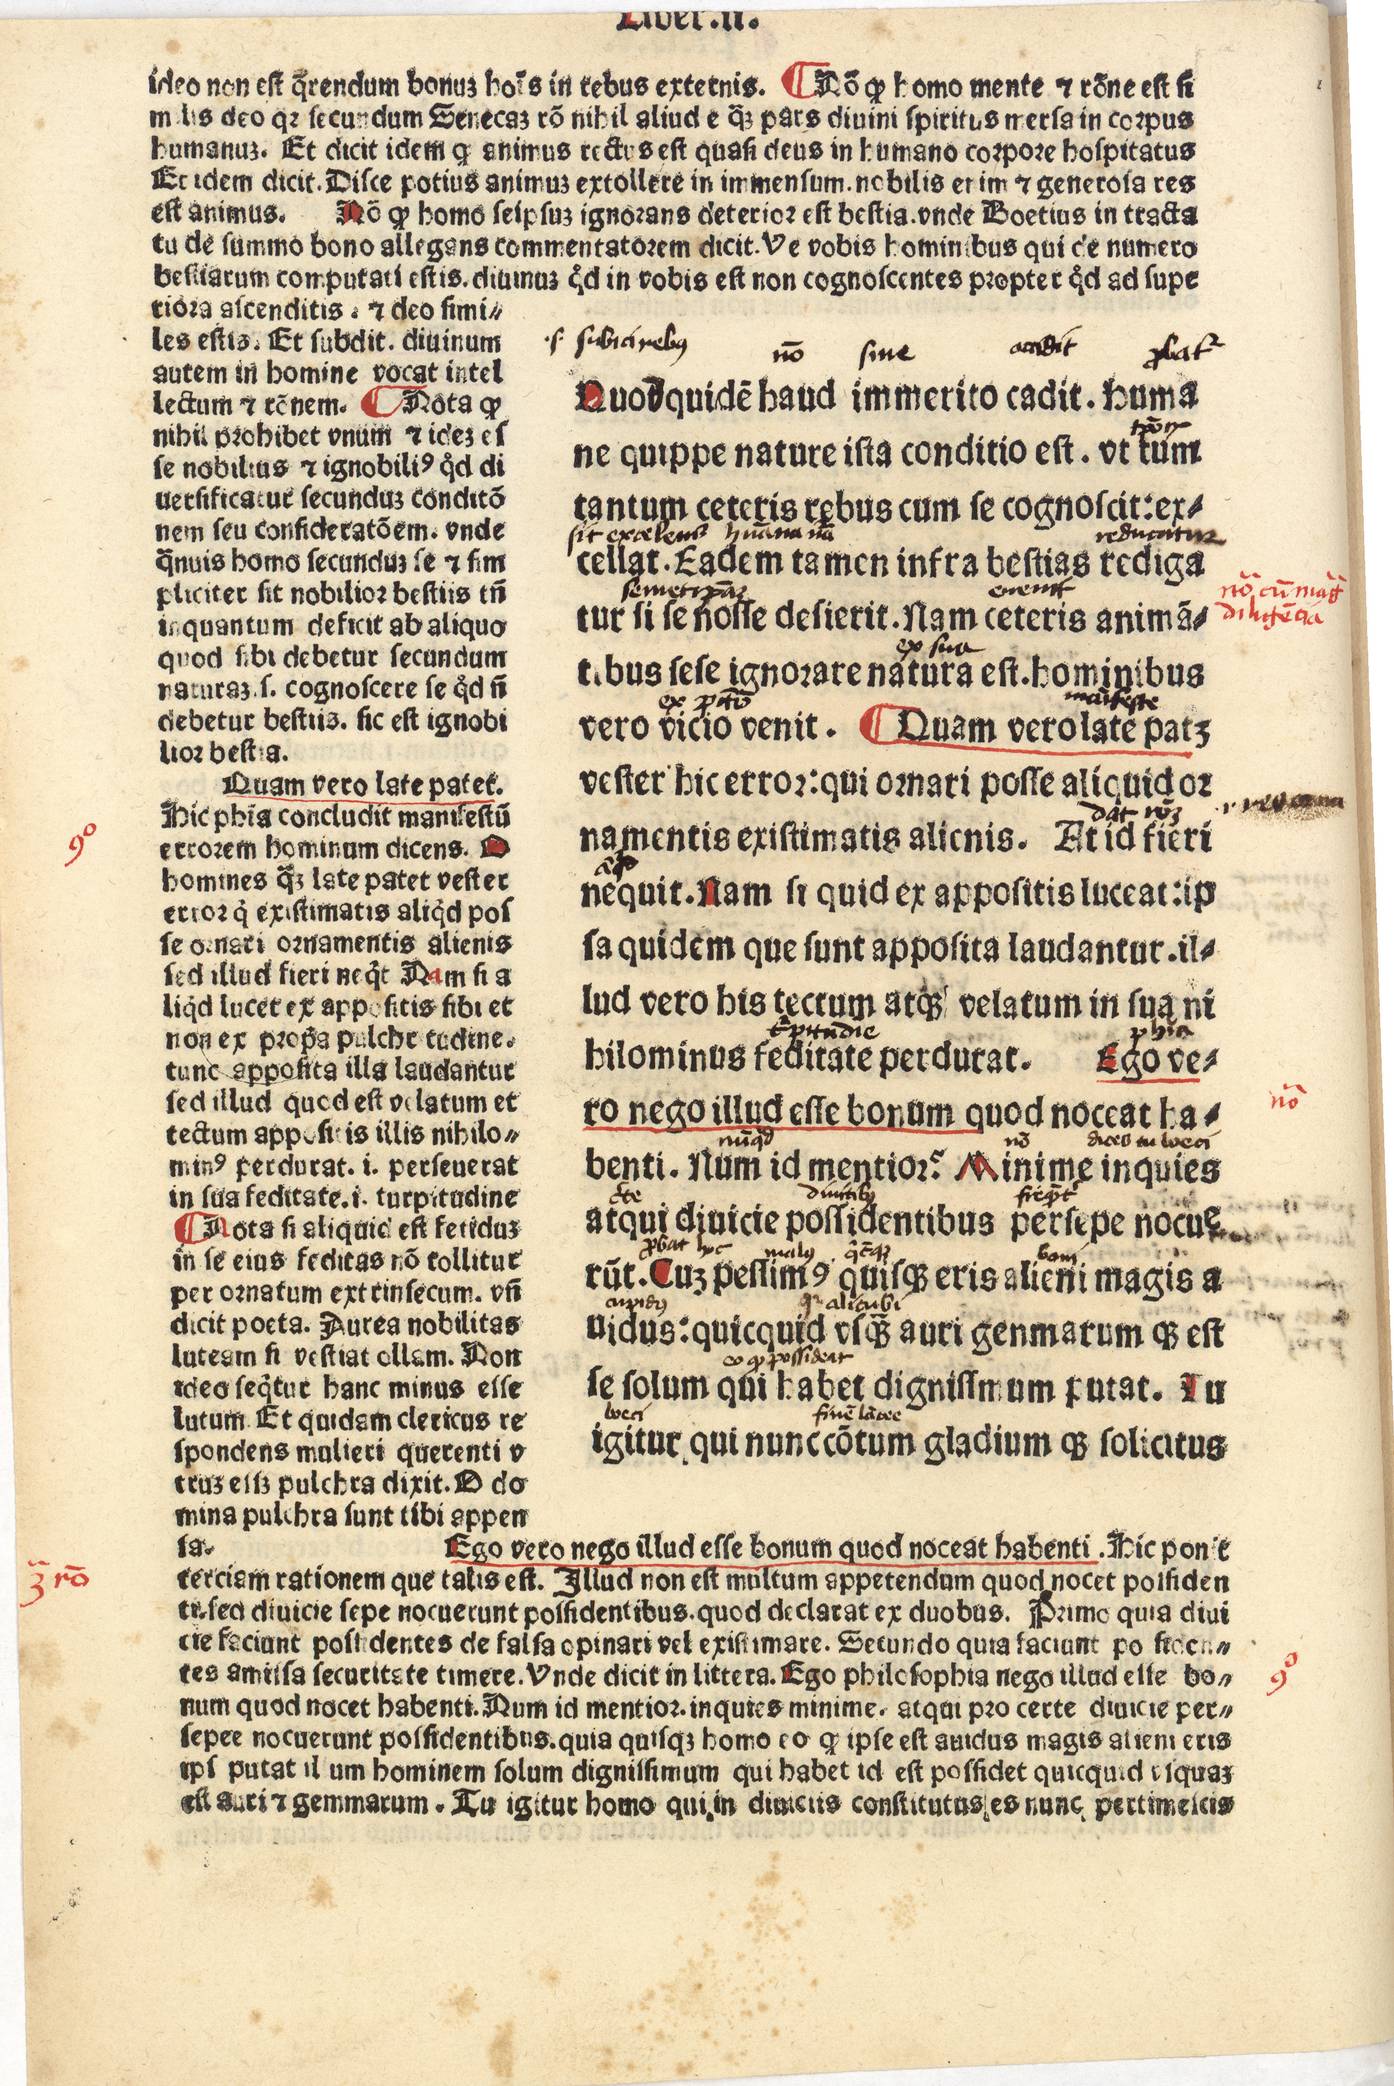 Liber.II.
ideo non est q̃rendum bonuȝ hoı̃s in rebus externis. ¶ Nõ ꝙ homo mente ⁊ rõne est si
milis deo qꝛ secundum Senecaȝ rõ nihil aliud e q̃ȝ pars diuini spiritus mersa in corpus
humanuȝ. Et dicit idem ꝙ animus rectus est quasi deus in humano corpore hospitatus
Et idem dicit. Disce potius animuȝ extollere in immensum. nobilis etim ⁊ generosa res
est animus. Nõ ꝙ homo seipsuȝ ignorans deterior est bestia. vnde Boetius in tracta
tu de summo bono allegans commentatorem dicit. Ve vobis hominibus qui de numero
bestiarum computati estis. diuinuȝ q̃d in vobis est non cognoscentes propter q̃d ad supe
riora ascenditis. ⁊ deo simi⸗
les estis. Et subdit. diuinum
autem in homine vocat intel
lectum ⁊ rõnem. ¶ Nota ꝙ
nihil prohibet vnum ⁊ ideȝ es
se nobilius ⁊ ignobiliꝰ q̃d di
uersificatur secunduȝ conditõ
nem seu consideratõem. vnde
q̃nuis homo secunduȝ se ⁊ sim
pliciter sit nobilior bestiis tñ
inquantum deficit ab aliquo
quod sibi debetur secundum
naturaȝ. s. cognoscere se q̃d ñ
debetur bestiis. sic est ignobi
lior bestia.
Quam vero late patet.
Hic phı̃a concludit manifestũ
errorem hominum dicens. O
homines q̃ȝ late patet vester
error q̃ existimatis aliq̃d pos
se ornari ornamentis alienis
sed illud fieri neq̃t Nam si a
liq̃d lucet ex appositis sibi et
non ex propa pulchritudine.
tunc apposita illa laudantur
sed illud quod est velatum et
tectum appositis illis nihilo⸗
minꝰ perdurat. i. perseuerat
in sua feditate. i. turpitudine
¶ Nota si aliquid est fetiduȝ
in se eius feditas nõ tollitur
per ornatum extrinsecum. vñ
dicit poeta. Aurea nobilitas
luteam si vestiat ollam. Non
ideo seq̃tur hanc minus esse
lutum Et quidam clericus re
spondens mulieri querenti v
truȝ essȝ pulchra dixit. O do
mina pulchra sunt tibi appen
sa.
.s. subici rebus nõ sine accidit ꝓbatr
Quod quidẽ haud immerito cadit. huma
ne quippe nature ista conditio est. vt tum
tantum ceteris rebus cum se cognoscit: ex⸗
sit excelens hũana nã reducatur
cellat. Eadem tamen infra bestias rediga
euenit
tur si se nosse desierit. Nam ceteris animã⸗
nõ cũ
diligẽcia
ex sua
tibus sese ignorare natura est. hominibus
manifeste
vero vicio venit. ¶ Quam vero late patȝ
vester hic error: qui ornari posse aliquid or
namentis existimatis alienis. At id fieri
nequit. Nam si quid ex appositis luceat: ip
sa quidem que sunt apposita laudantur. il⸗
lud vero his tectum atqȝ velatum in sua ni
t̃pitudie phia
hilominus feditate perdurat. Ego ve⸗
ro nego illud esse bonum quod noceat ha⸗
nõ
nũq̃d nõ dices tu boeci
benti. Num id mentior? Minime inquies
diuitibꝰ freq̃t
atqui diuicie possidentibus persepe nocue
ꝓbat hoc malꝰ boni
rũt. Cuȝ pessimꝰ quisqȝ eris alieni magis a
cupidꝰ alicubi
uidus: quicquid vsqȝ auri genmarum qȝ est
eo ꝙ possideat
se solum qui habet dignissimum putat. Tu
boeci
igitur qui nunc cõtum gladium qȝ solicitus
9o
Ego vero nego illud esse bonum quod noceat habenti. Hic ponit
3 rõ
terciam rationem que talis est. Illud non est multum appetendum quod nocet possiden
ti. sed diuicie sepe nocuerunt possidentibus. quod declarat ex duobus. Primo quia diui
cie faciunt possidentes de falsa opinari vel existimare. Secundo quia faciunt possiden⸗
tes amissa securitate timere. Vnde dicit in littera. Ego philosophia nego illud esse bo⸗
9o
num quod nocet habenti. Num id mentior. inquies minime. atqui pro certe diuicie per⸗
sepe nocuerunt possidentibus. quia quisqȝ homo eo ꝙ ipse est auidus magis alieni eris
ipse putat illum hominem solum dignissimum qui habet id est possidet quicquid vsquaȝ
est auri ⁊ gemmarum. Tu igitur homo qui in diuiciis constitutus es nunc pertimescis